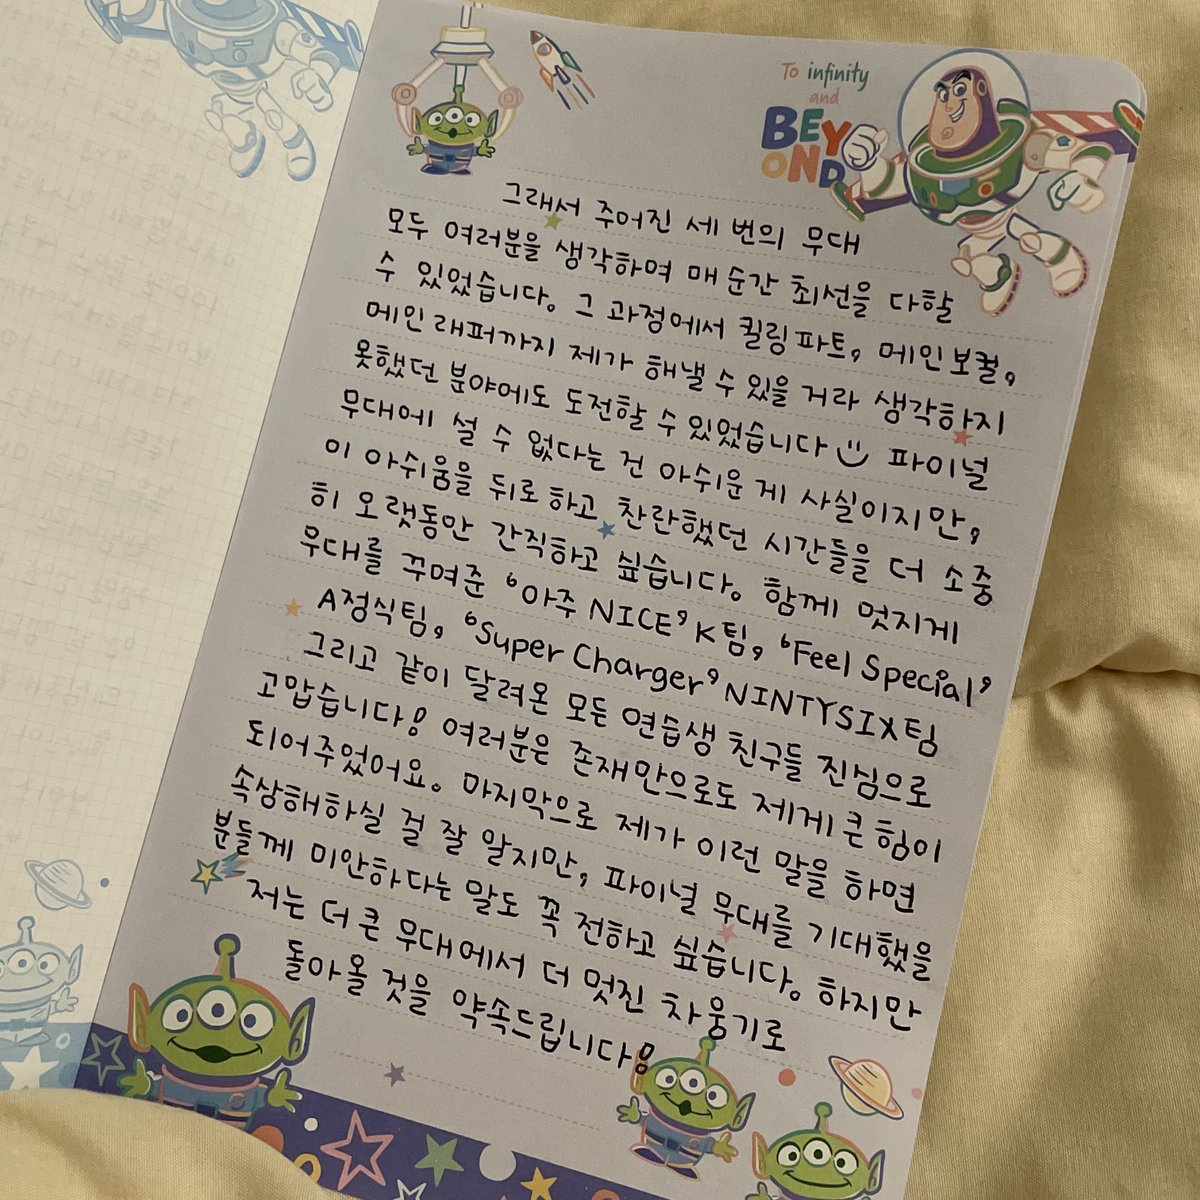 To infinity
and
BEY
OND
그래서 주어진 세 번의 무대
모두 여러분을 생각하며 매 순간 최선을 다할
수 있었습니다. 그 과정에서 킬링파트, 메인보컬,
메인래퍼까지 제가 해낼 수 있을 거라 생각하지
못했던 분야에도 도전할 수 있었습니다 파이널
무대에 설 수 없다는 건 아쉬운 게 사실이지만,
이 아쉬움을 뒤로 하고 찬란했던 시간들을 더 소중
히 오랫동안 간직하고 싶습니다. 함께 멋지게
무대를 꾸며준 '아주 NICE' K팀, 'Feel Special'
A정식팀, 'Super Charger' NINTYSIX팀
그리고 같이 달려온 모든 연습생 친구들 진심으로
고맙습니다! 여러분은 존재만으로도 제게 큰 힘이
되어주었어요. 마지막으로 제가 이런 말을 하면
속상해하실 걸 잘 알지만, 파이널 무대를 기대했을
분들께 미안하다는 말도 꼭 전하고 싶습니다. 하지만
저는 더 큰 무대에서 더 멋진 차웅기로
돌아올 것을 약속드립니다!